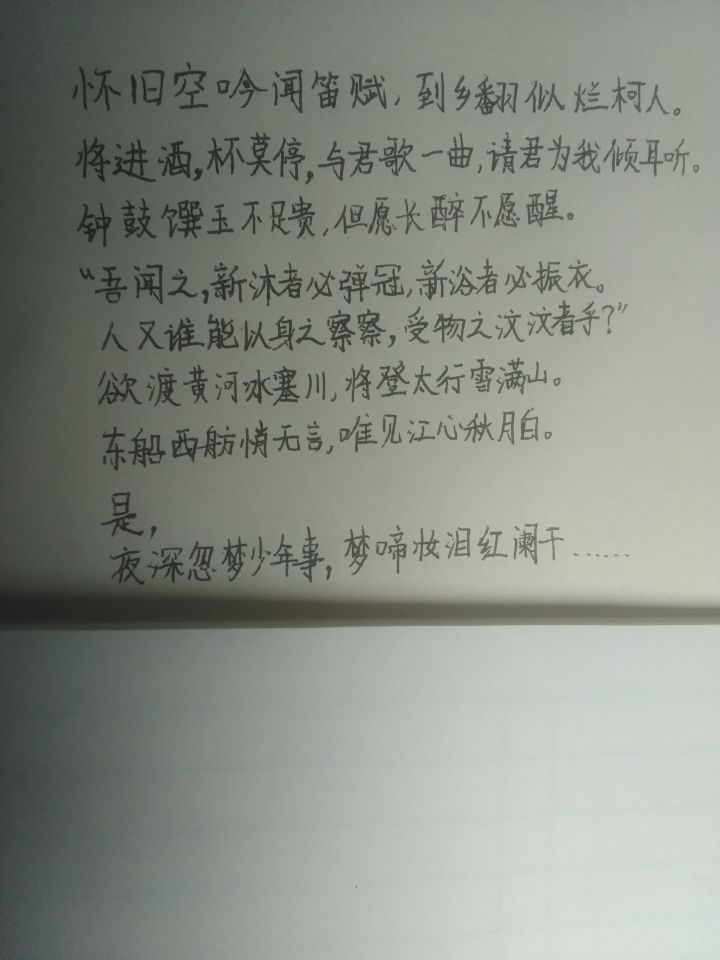 怀旧空吟闻笛赋，到乡翻似烂柯人。
将进酒，杯莫停，与君歌一曲，请君为我倾耳听。
钟鼓馔玉不足贵，但愿长醉不愿醒。
“吾闻之，新沐者必弹冠，新浴者必振衣。
人又谁能以身之察察，受物之汶汶者乎？”
欲渡黄河冰塞川，将登太行雪满山。
东船西舫悄无言，唯见江心秋月白。
是，
夜深忽梦少年事，梦啼妆泪红阑干……